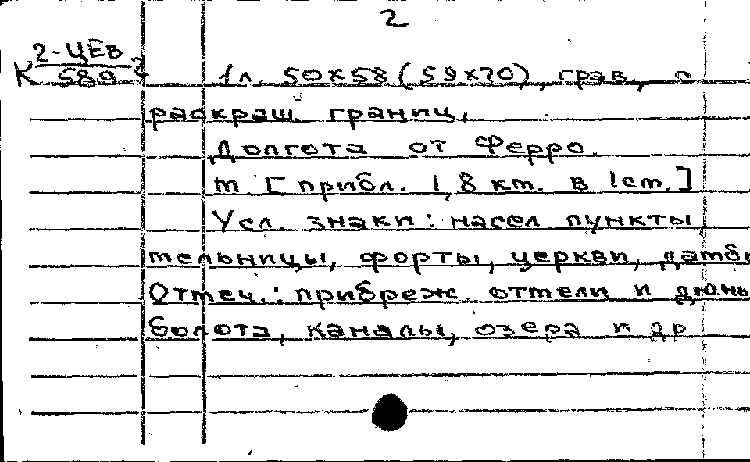 2
2-ЦЕВ
К 580
1л. 50×58 (59×70), грав, п
раскраш границ,
Долгота от Ферро.
m. [прибл. 1,8 км. в 1 cm.]
Усл. знаки: насел пункты,
мельницы, форты, церкви, дамбы
Отмеч.: прибреж. отмели и дюны
болота, каналы, озера и др